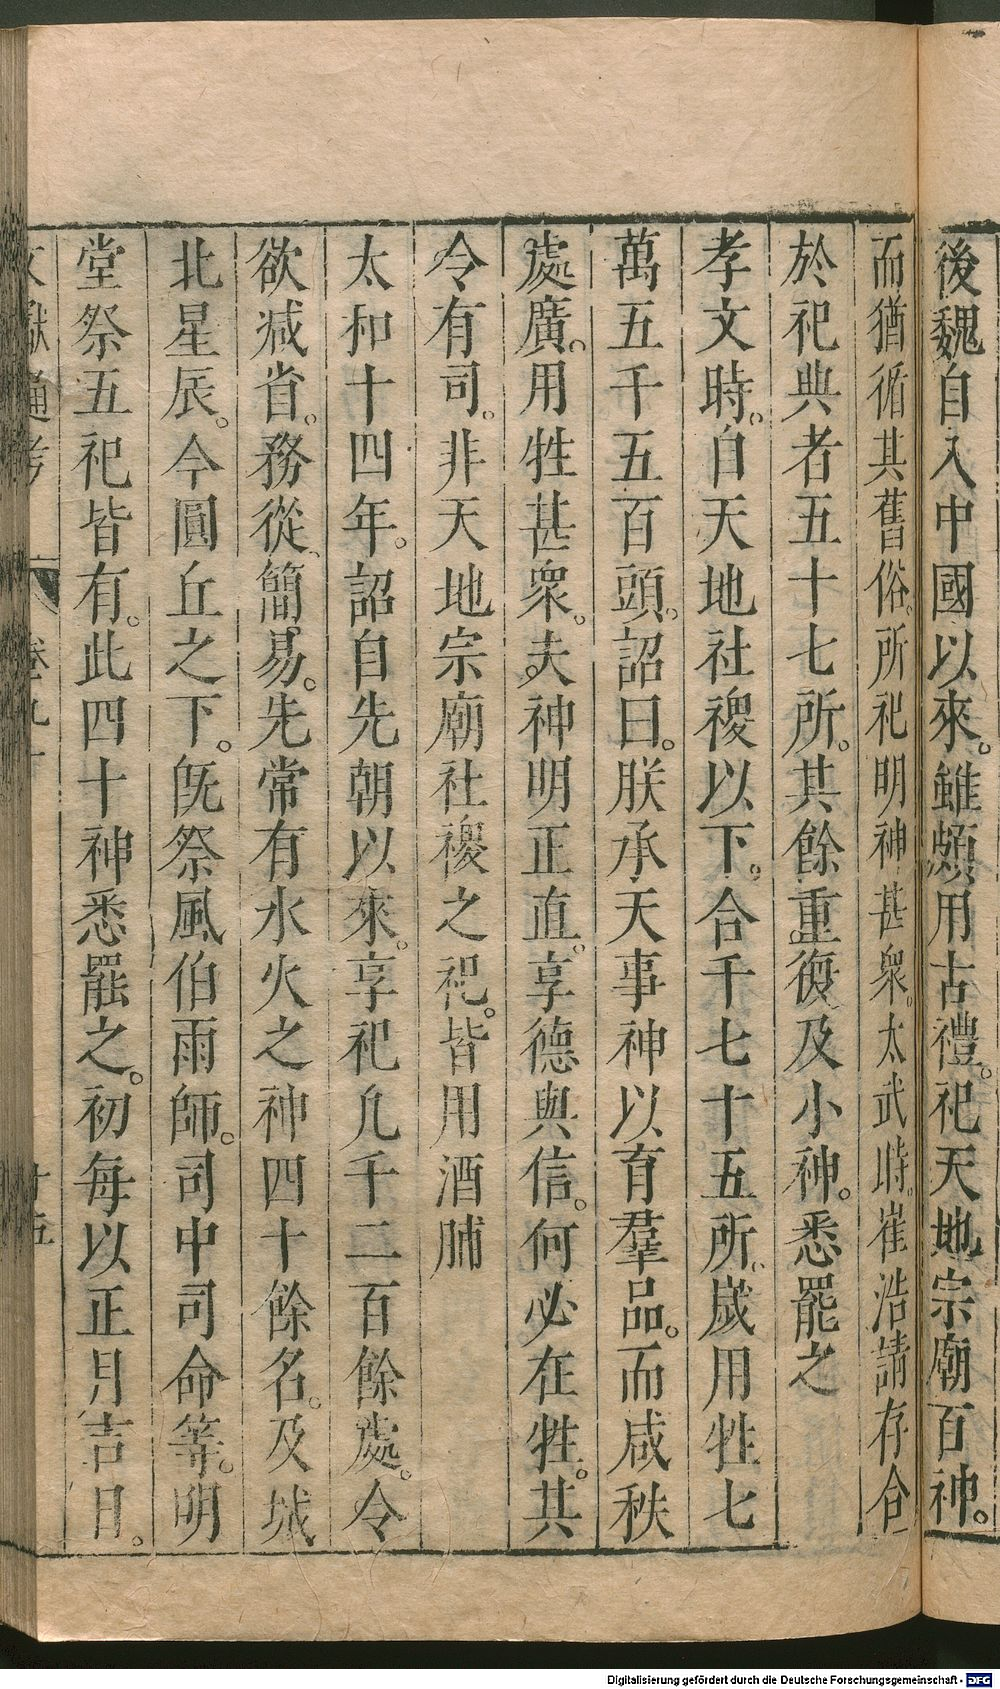 後魏自入中國以來。雖頗用古禮。祀天地宗廟百神。
而猶循其舊俗。所祀明神甚衆。太武時。崔浩請存合
於祀典者五十七所。其餘重復及小神。悉罷之
孝文時。自天地社稷以下。合千七十五所。歲用牲七
萬五千五百頭。詔曰。朕承天事神以育羣品。而咸秩
處廣。用牲甚衆。夫神明正直。享德與信。何必在牲。其
令有司。非天地宗廟社稷之祀。皆用酒脯
太和十四年。詔自先朝以來。享祀凡千二百餘處。今
欲减省。務從簡易。先常有水火之神四十餘名。及城
北星辰。今圓丘之下。旣祭風伯雨師。司中司命等。明
堂祭五祀皆有。此四十神悉罷之。初每以正月吉日。
文獻通考 卷九十 十五
Digitalisierung gefördert durch die Deutsche Forschungsgemeinschaft - DFG